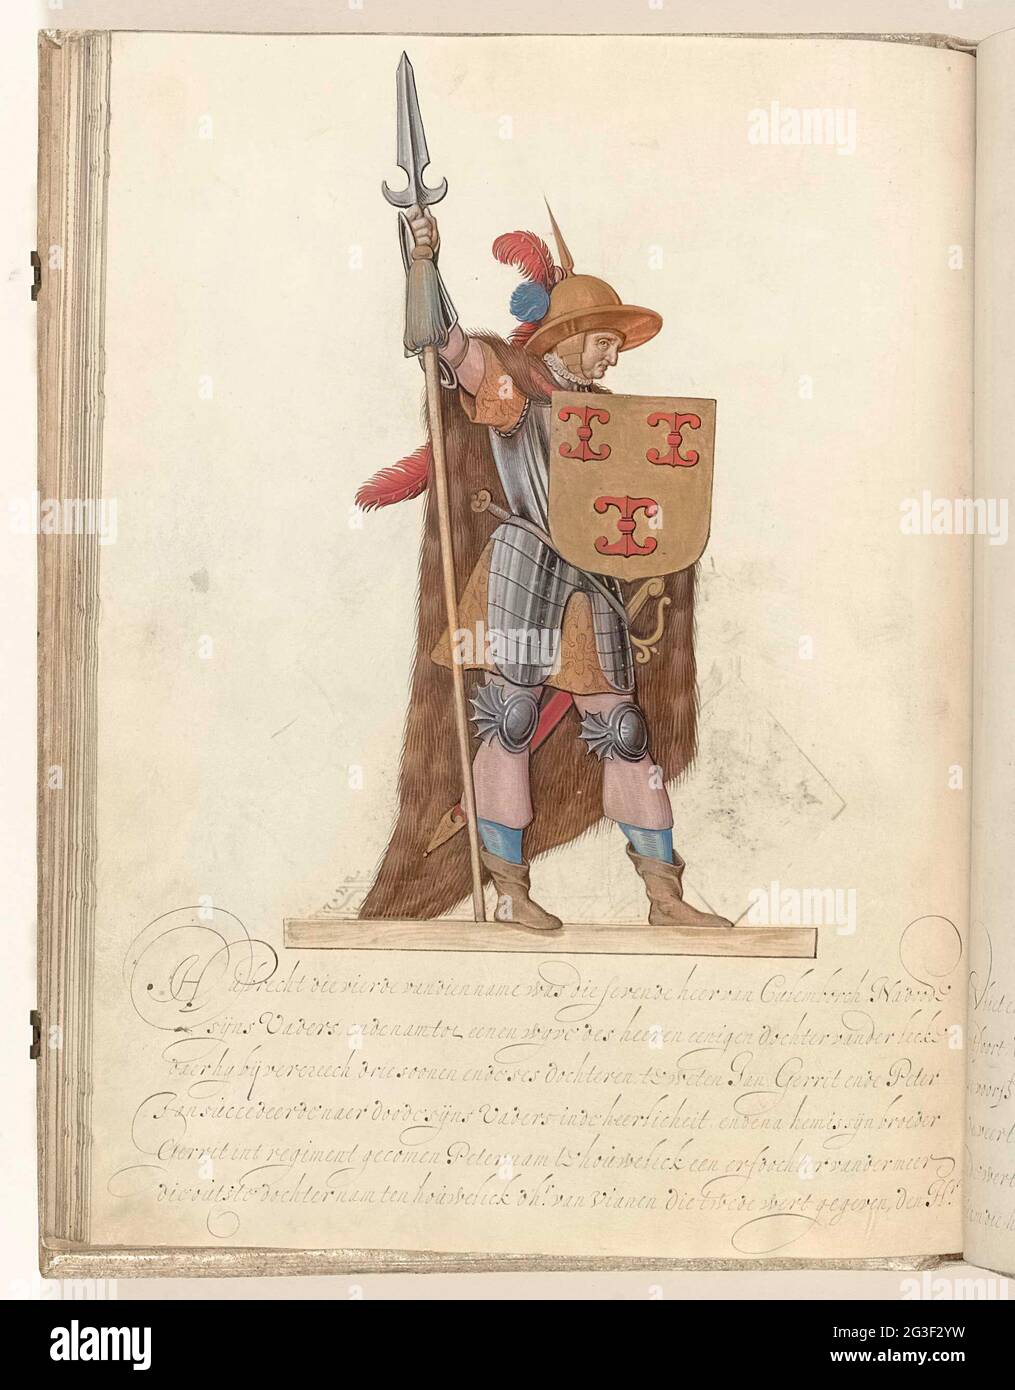 Hubrecht die vierde van dien name was die sevende heer van Culemborch. Na dode
sijns Vaders, ende nam tot eenen wyve des heeren eenigen dochter vander lecke
daer hy bij vercreech drie soonen ende ses dochteren, te weten Jan Gerrit ende Peter
Jan succedeerde naer doode sijns Vaders inde heerlicheit, ende na hem is sijn broeder
Gerrit int regiment gecomen Peter nam te houwelick een erfdochter vander meer
die outste dochter nam ten houwelick van vianen die twede wert gegeven, den Hr
alamy
Image ID: 2G3F2YW
www.alamy.com